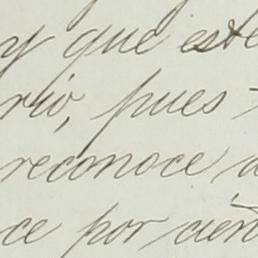 y que este
rio, pues
reconoce
ce por cien